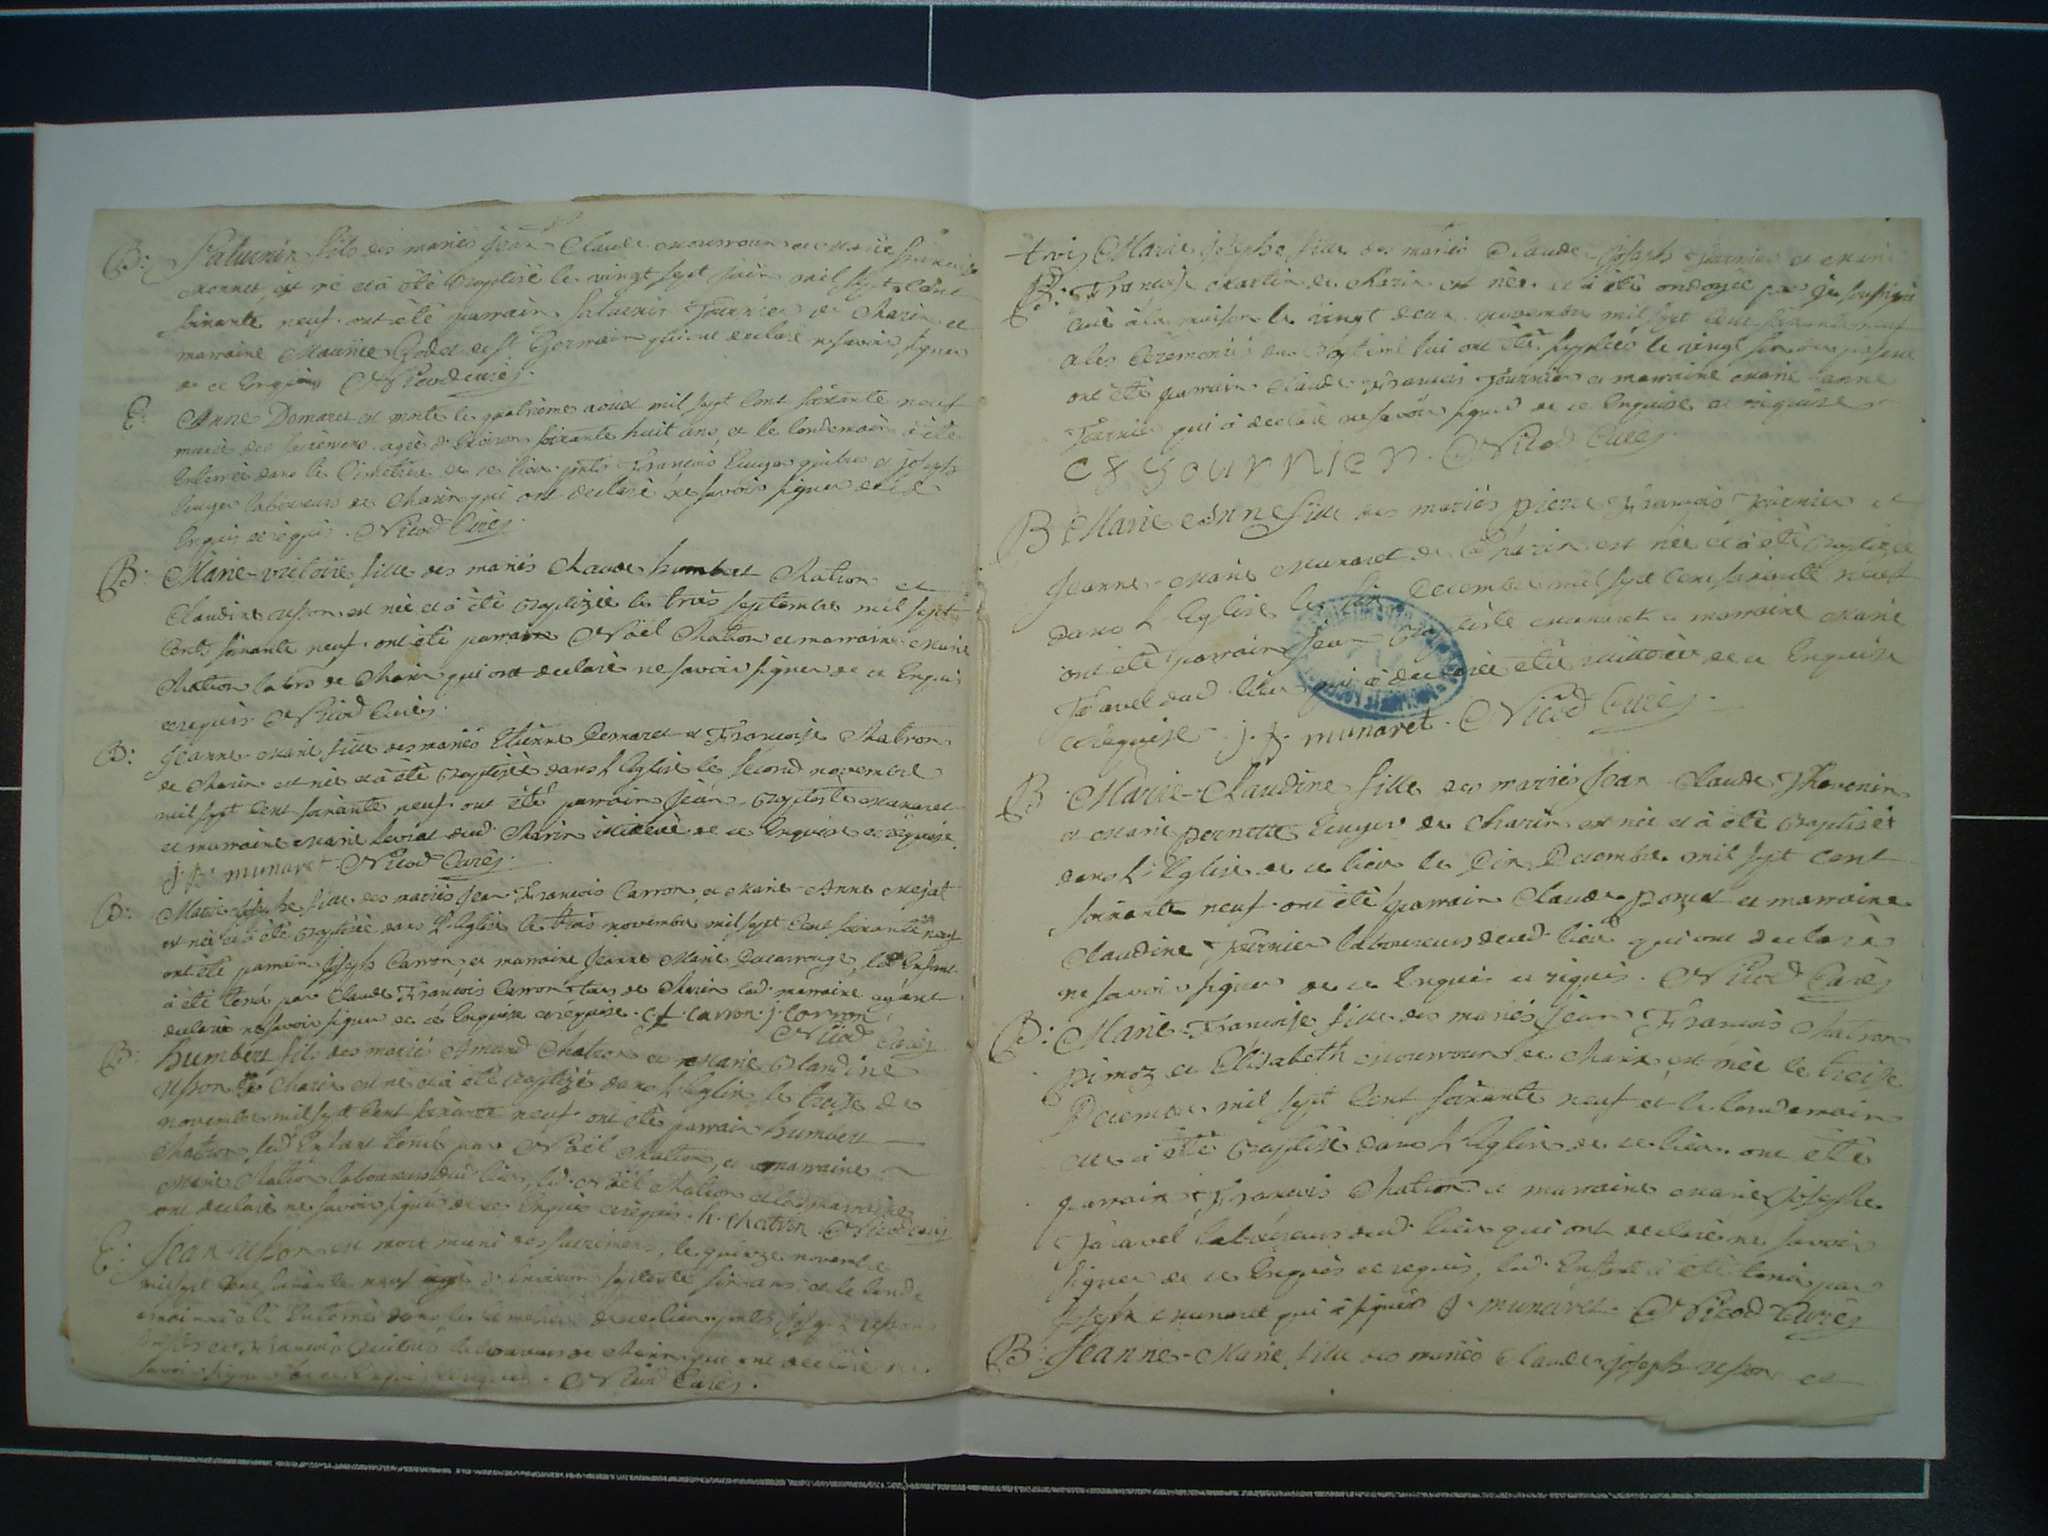 B: Saturnin fils des mariés jean Claude mourroux et marie françoise
monnet, est né et à été Baptisé le vingt sept juin mil sept Cent
soixante neuf. ont été parrain Saturnin Fournier de Charin et
marraine Maurise Godet de St Germain qui ont declaré ne savoir signer
de ce Enquis Nicod curé
E: Anne Domaret est morte le quatrième aoust mil sept Cent soixante neuf
munie des sacremens agée d'Environ soixante huit ans, et le Lendemain à été
Enterrée dans le Cimetière de ce lieu. pnts François Cuzin et joseph
laboureurs de Charin qui ont declaré ne savoir signer de ce
Enquis et requis. Nicod Curé
B: Marie-victoire fille des mariés Claude humbert Chatron et
Claudine usson est née et à été Baptizée le trois septembre mil sept
Cents soixante neuf. ont été parrain Noël Chatron et marraine Marie
Chatron labrs de Charin qui ont declaré ne savoir signer de ce Enquis
et requis Nicod Curé
B: Jeanne-Marie fille des mariés Etienne Domaret et Françoise Chatron
de Charin est née et à été Baptisée dans l'Eglise le second novembre
mil sept Cent soixante neuf. ont été parrain jean-Baptiste Munaret
et marraine Marie dud. Charin de ce Enquise et requise.
j. B. munaret. Nicod Curé
B: Marie josephe fille des mariés jean François Carron, et Marie-Anne Mejat
est née et à été Baptisée dans l'Eglise le trois novembre mil sept Cent soixante neuf
ont été parrain joseph Carron, et marraine jeanne Marie Ducarrouge, led. Enfant
à été tenu par Claude François Carron tous de Charin lad. marraine ayant
declaré ne savoir signer de ce Enquise et requise. C.f. Carron. j. Carron.
Nicod Curé
B: humbert fils des mariés Amand Chatron et Marie Claudine
usson de Charin est né et à été Baptizé dans l'Eglise le treize de
novembre mil sept Cent soixante neuf. ont été parrain humbert
Chatron, led. Enfant tenu par Noël Chatron, et marraine
Marie Chatron laboureurs dud. lieu, led. Noël Chatron et lad. marraine
ont declaré ne savoir signer de ce Enquis et requis. h. Chatron Nicod curé
E: Jean usson est mort muni des sacremens, le quinze novembre
mil sept Cent soixante neuf agé d'Environ septante six ans et le Lende
main à été Enterré dans le Cimetière de ce lieu. pnts
François laboureurs de Charin qui ont declaré ne
savoir signer de ce Enquis et requis. Nicod Curé.
trois Marie josephe fille des mariés Claude-joseph Fournier et Marie
B: Françoise Martin de Charin est née et à été ondoyée par je soussigné
Curé à la maison le vingt deux novembre mil sept Cent soixante neuf
et les Ceremonies du Baptême lui ont été suppléés le vingt six du present
ont été parrain Claude-François Fournier et marraine Marie Janne
Fournier qui à declaré ne savoir signer de ce Enquise et requise
C F FOURNIER. Nicod Curé
B Marie Anne fille des mariés pierre François Fournier et
jeanne-Marie Munaret de Charin est née et à été Baptizée
dans l'Eglise le Decembre mil sept Cent soixante neuf
ont été parrain jean Baptiste Munaret et marraine Marie
Javel dud. lieu qui à declaré de ce Enquise
et requise j. B. munaret. Nicod Curé
B Marie-Claudine fille des mariés Jean-Claude Thevenin
et Marie pernette Cuzin de Charin est née et à été Baptisée
dans l'Eglise de ce lieu le Dix Decembre mil sept cent
soixante neuf. ont été parrain Claude ponçet et marraine
Claudine Fournier laboureurs dud. lieu qui ont declaré
ne savoir signer de ce Enquis et requis. Nicod Curé
B: Marie-Françoise fille des mariés jean François Chatron
pimoz et Elisabeth mourroux de Charin est née le treize
Decembre mil sept Cent soixante neuf et le Lendemain
elle à été Baptisée dans l'Eglise de ce lieu. ont été
parrain François Chatron et marraine Marie josephe
Javel laboureurs dud. lieu qui ont declaré ne savoir
signer de ce Enquis et requis, lad. Enfant à été tenue par
joseph Munaret qui à signé J. munaret. Nicod Curé
B: Jeanne-Marie fille des mariés Claude-joseph usson et